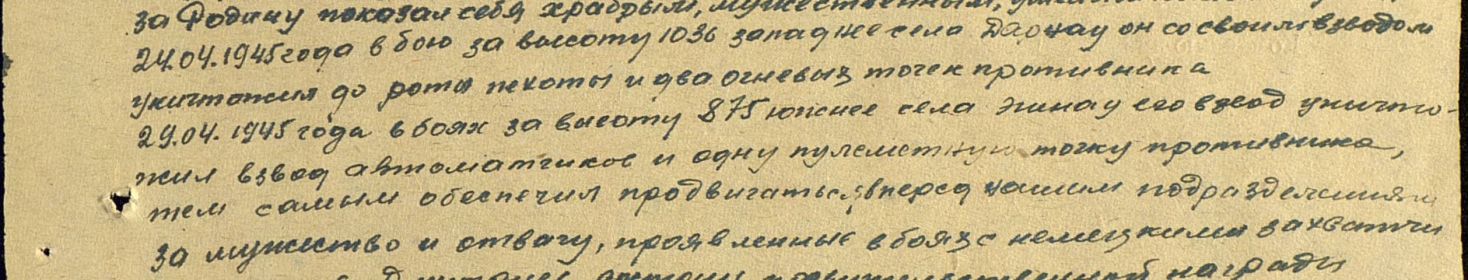 за Родину показал себя храбрым, мужественным,
24.04.1945 года в бою за высоту 1036 западнее села Дарнау он со своим взводом
уничтожил до роты пехоты и два огневых точек противника
29.04.1945 года в боях за высоту 875 южнее села Эинау его взвод уничто-
жил взвод автоматчиков и одну пулеметную точку противника,
тем самым обеспечил продвигаться вперед нашим подразделениям
за мужество и отвагу, проявленные в боях с немецкими захватчи
правительственной награды